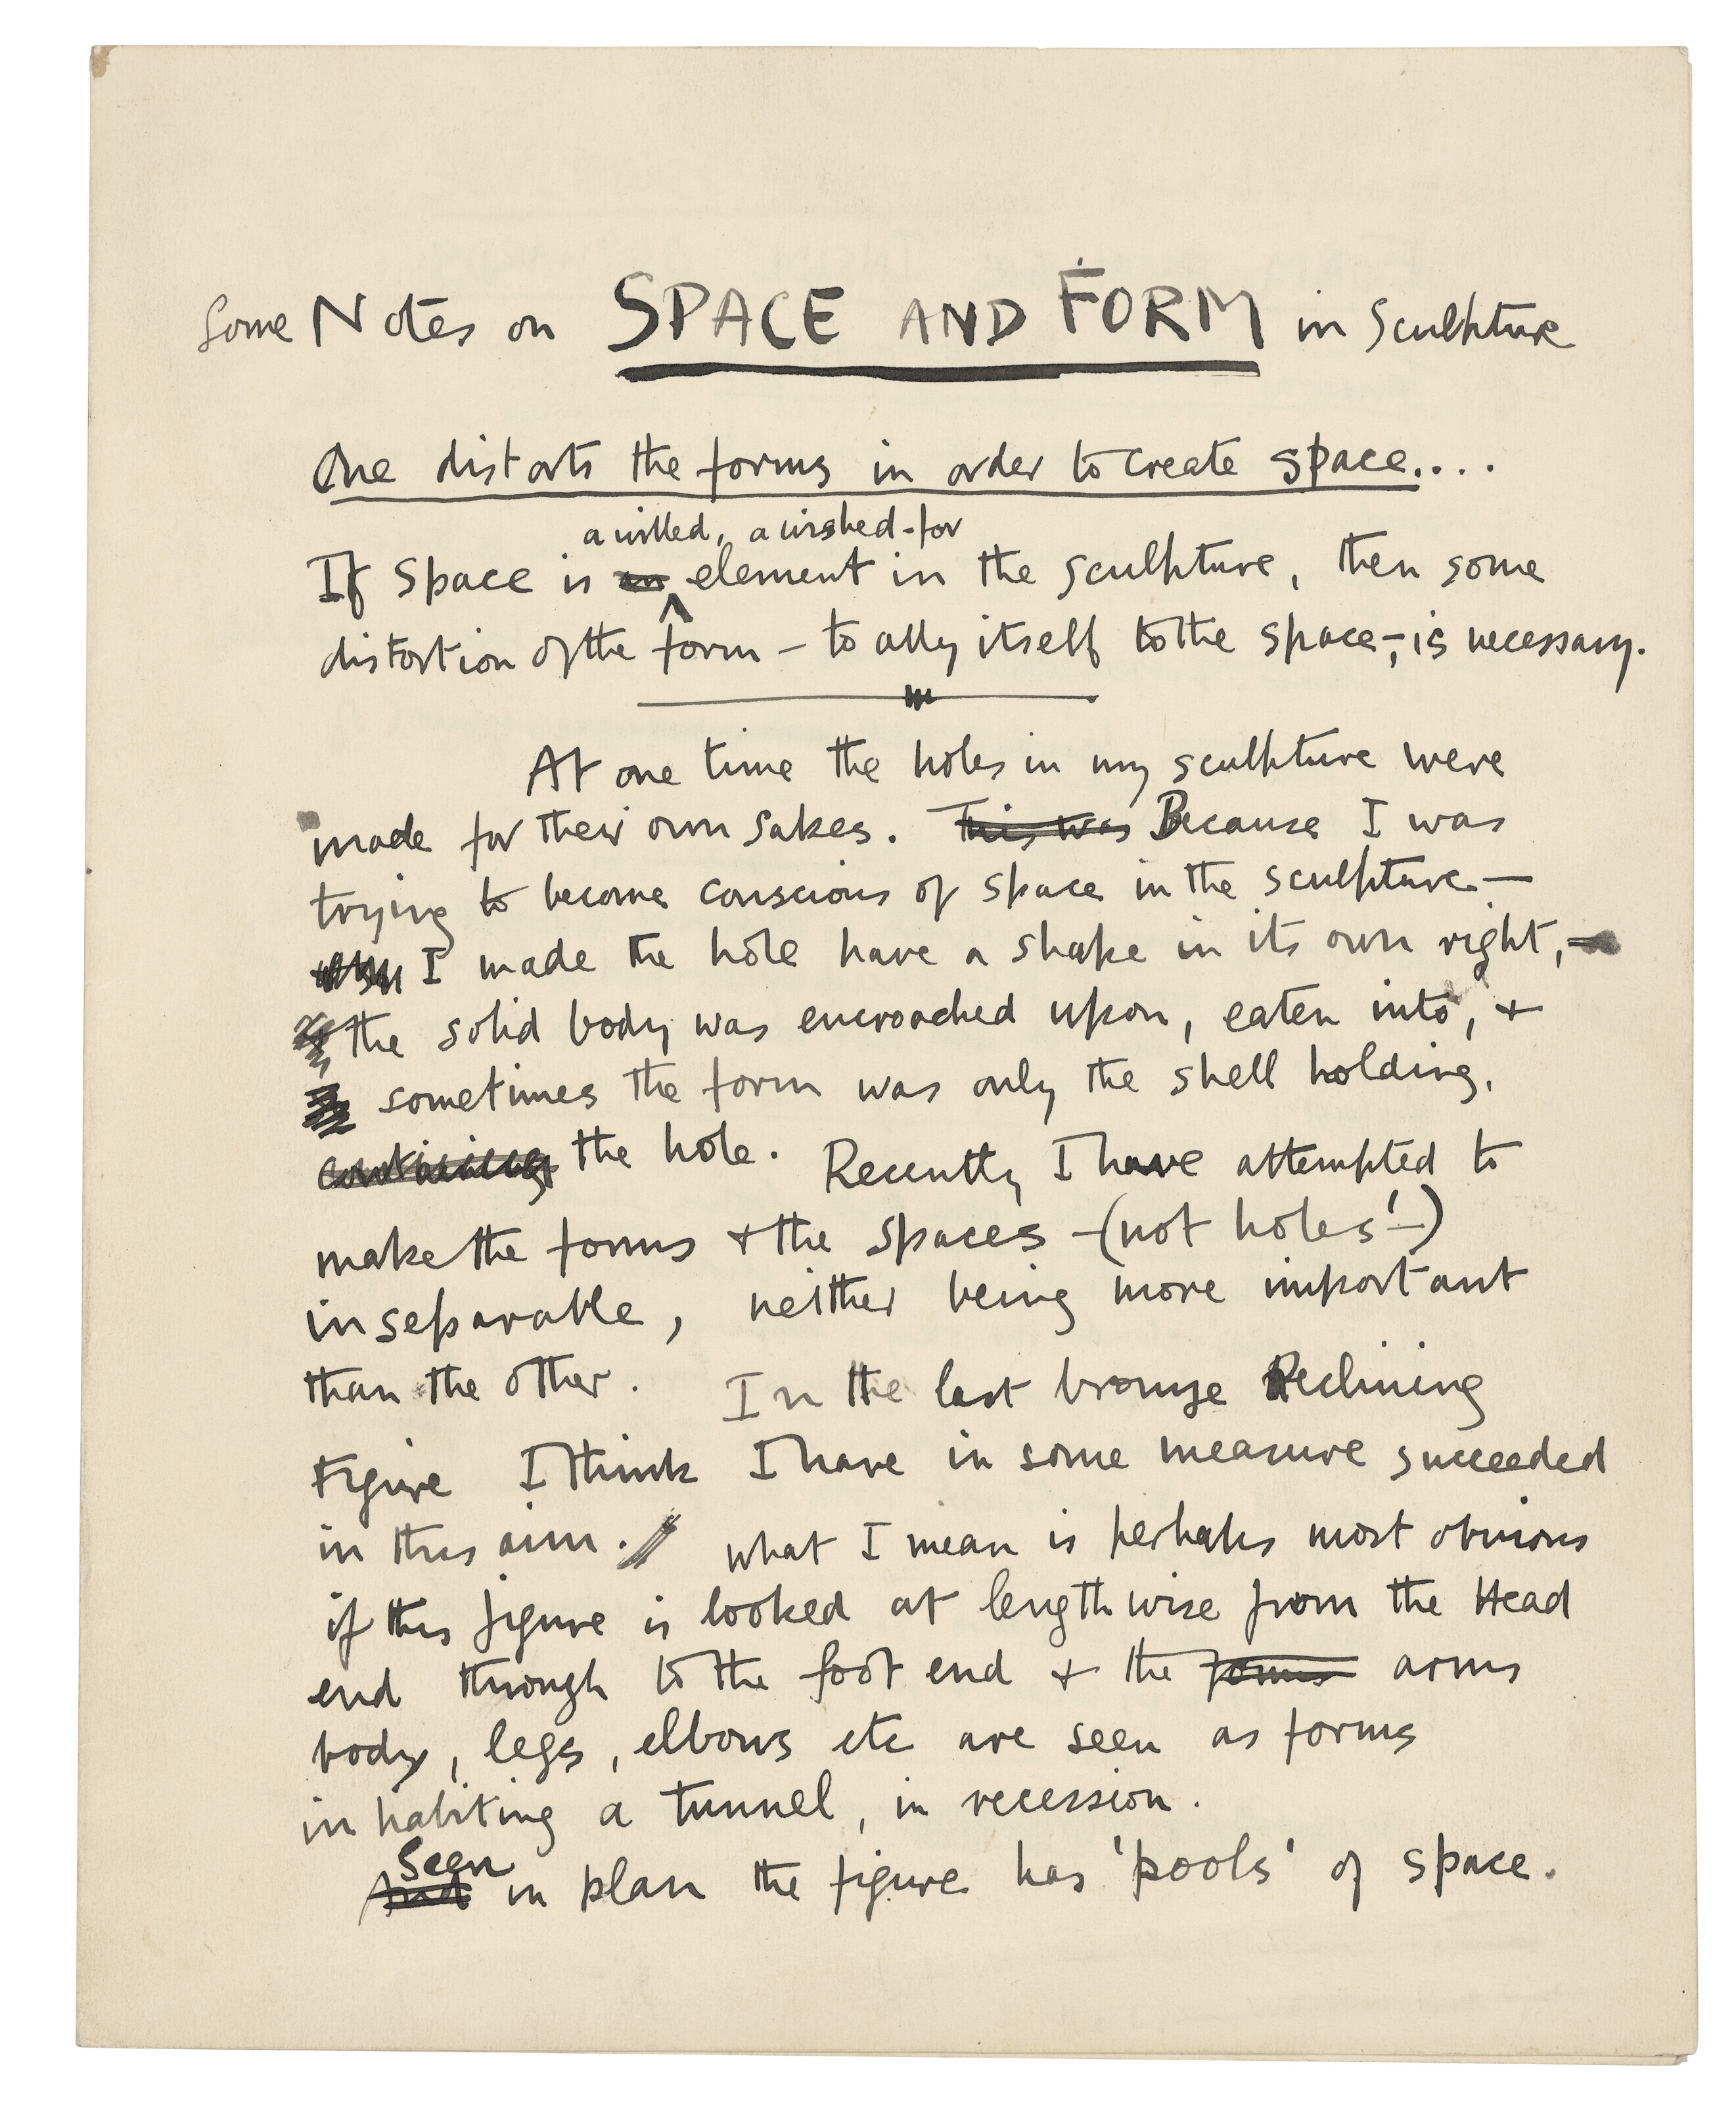 Some Notes on SPACE AND FORM in Sculpture
One distorts the forms in order to create space....
a willed, a wished-for
If space is an element in the sculpture, then some
distortion of the form – to ally itself to the space –, is necessary.
At one time the holes in my sculpture were
made for their own sakes. This was Because I was
trying to become conscious of space in the sculpture –
I made the hole have a shape in its own right, –
the solid body was encroached upon, eaten into, &
sometimes the form was only the shell holding,
containing the hole. Recently I have attempted to
make the forms & the spaces – (not holes! –)
inseparable, neither being more important
than the other. In the last bronze Reclining
Figure I think I have in some measure succeeded
in this aim. // what I mean is perhaps most obvious
if this figure is looked at lengthwise from the Head
end through to the foot end & the forms arms
body, legs, elbows etc are seen as forms
inhabiting a tunnel, in recession.
Seen
And in plan the figure has 'pools' of space.